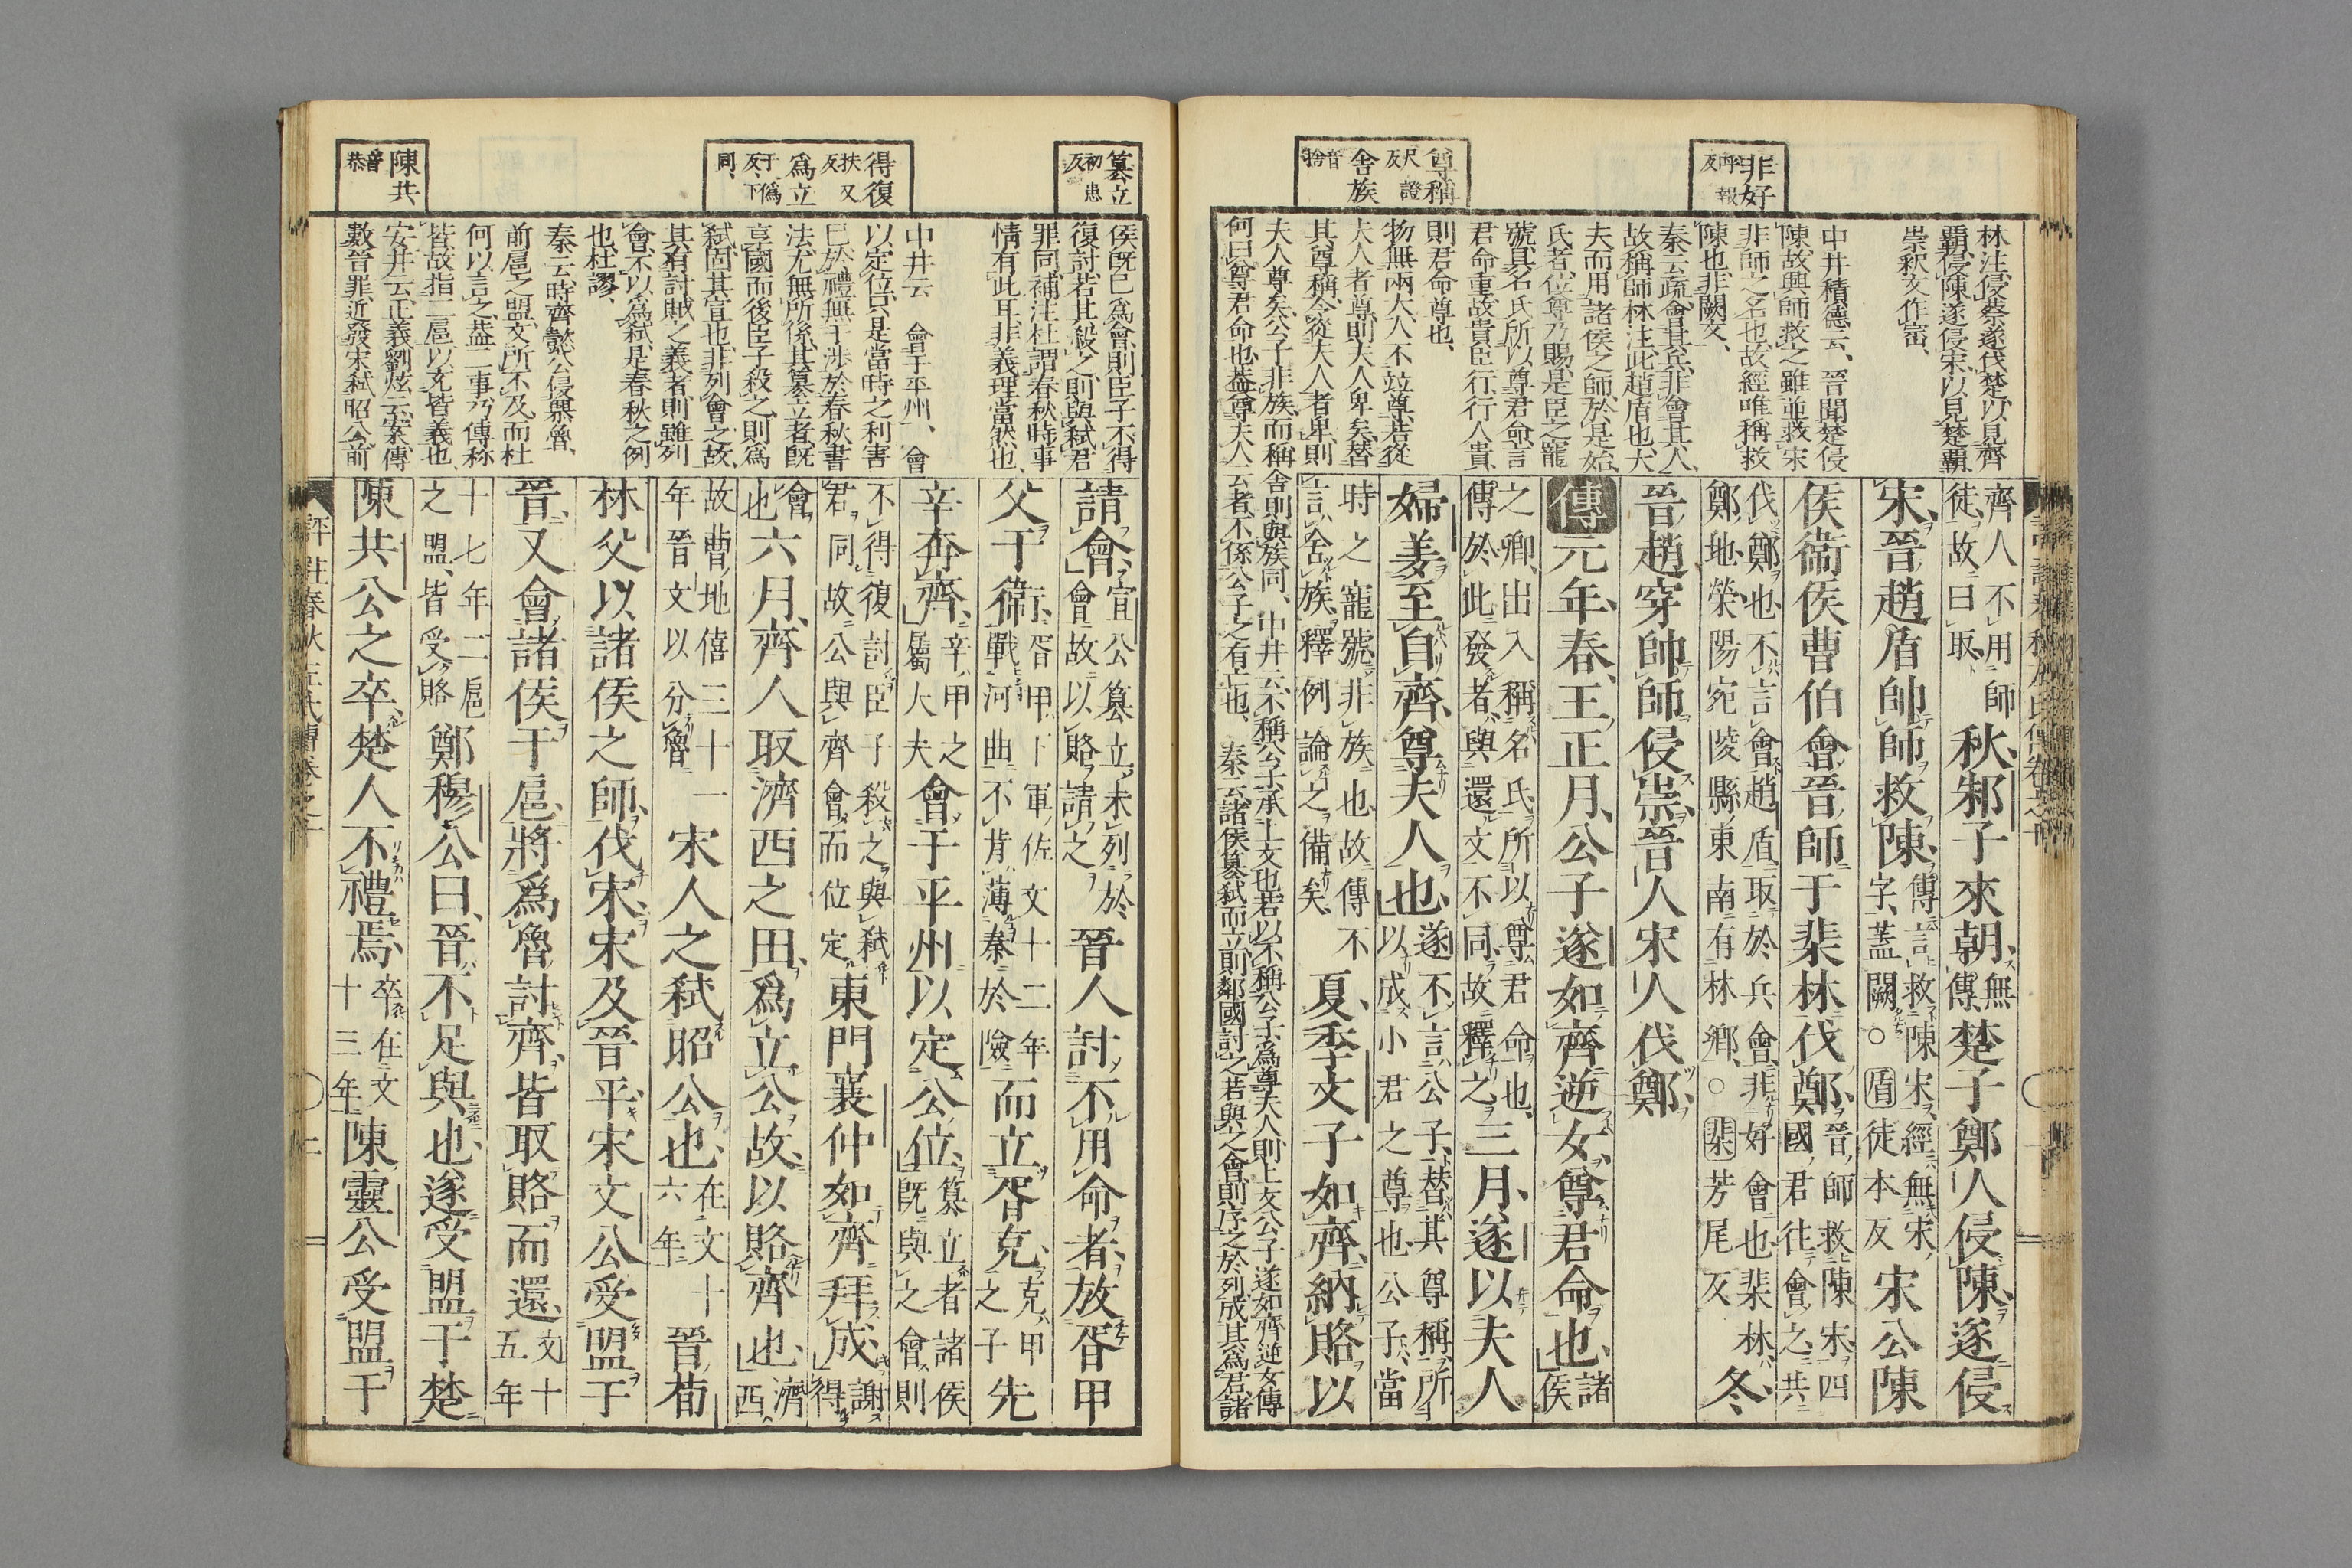 非好
呼報反
尊稱
尺證反
舍族
音捨
林注、侵蔡遂伐楚、以見齊
霸、侵陳遂侵宋、以見楚霸、
崇釋文作崈、
中井積德云、晉聞楚侵
陳、故興師救之、雖並救宋
非師之名也、故經唯稱救
陳也、非闕文、
秦云、疏、會其兵、非會其人、
故稱師、林注、此趙盾也、大
夫而用諸侯之師、於是始、
氏者、位尊乃賜、是臣之寵
號、具名氏、所以尊君命、言
君命重、故貴臣行、行人貴、
則君命尊也、
物無兩大、人不竝尊、若從
夫人者尊、則夫人卑矣、替
其尊稱、令從夫人者卑、則
夫人尊矣、公子非族、而稱舍則與族同、中井云、不稱公子、承上文也、若以不稱公子、爲尊夫人、則上文公子遂如齊逆女、傳
何曰、尊君命也、蓋尊夫人云者、不係公子之有亡也、秦云、諸侯簒弑而立、則鄰國討之、若與之會、則序之於列、成其爲君、諸
齊人不用師徒、故曰取、秋、邾子來朝、無傳、楚子鄭人侵陳、遂侵
宋、晉趙盾帥師救陳、傳言救陳宋、經無宋字、蓋闕○盾徒本反宋公陳
侯衞侯曹伯會晉師于棐林、伐鄭、晉師救陳宋、四國君往會之、共
伐鄭也、不言會趙盾、取於兵會、非好會也、棐林、鄭地、滎陽宛陵縣東南有林鄕、○棐芳尾反冬、
晉趙穿帥師侵崇、晉人宋人伐鄭、
傳元年、春、王正月、公子遂如齊逆女、尊君命也、諸侯
之卿、出入稱名氏、所以尊君命也、傳於此發者、與還文不同、故釋之、三月、遂以夫人
婦姜至自齊、尊夫人也、遂不言公子、替其尊稱、所以成小君之尊也、公子、當
時之寵號、非族也、故傳不言舍族、釋例論之備矣、夏、季文子如齊、納賂以
簒立
初患反
得復
扶又反
爲立
于僞反、下同、
陳共
音恭
侯既已爲會、則臣子不得
復討、若其殺之、則與弑君
罪同、補注、杜謂春秋時事
情有此耳、非義理當然也、
中井云、會于平州、會
以定位、只是當時之利害
已、於禮無干涉、於春秋書
法尤無所係、其簒立者、既
享國而後臣子殺之、則爲
弑、固其宜也、非列會之故、
其有討賊之義者、則雖列
會、不以爲弑、是春秋之例
也、杜謬、
秦云、時齊懿公侵無魯、
前扈之盟、文所不及、而杜
何以言之、蓋二事乃傳称
皆、故指二扈、以充皆義也、
安井云、正義、劉炫云、案傳
數晉罪、近發宋弑昭公、前
請會、宣公簒立、未列於會、故以賂請之、晉人討不用命者、放胥甲
父于衞、胥甲、下軍佐、文十二年戰河曲、不肯薄秦於險、而立胥克、克、甲之子、先
辛奔齊、辛、甲之屬大夫、會于平州、以定公位、簒立者、諸侯既與之會、則
不得復討、臣子殺之、與弑君同、故公與齊會、而位定、東門襄仲如齊拜成、謝得
會也、六月、齊人取濟西之田、爲立公故、以賂齊也、濟西、
故曹地、僖三十一年、晉文以分魯、宋人之弑昭公也、在文十六年、晉荀
林父以諸侯之師伐宋、宋及晉平、宋文公受盟于
晉、又會諸侯于扈、將爲魯討齊、皆取賂而還、文十五年
十七年、二扈之盟、皆受賂、鄭穆公曰、晉不足與也、遂受盟于楚、
陳共公之卒、楚人不禮焉、卒在文十三年、陳靈公受盟于
評註春秋左氏傳卷之十
二